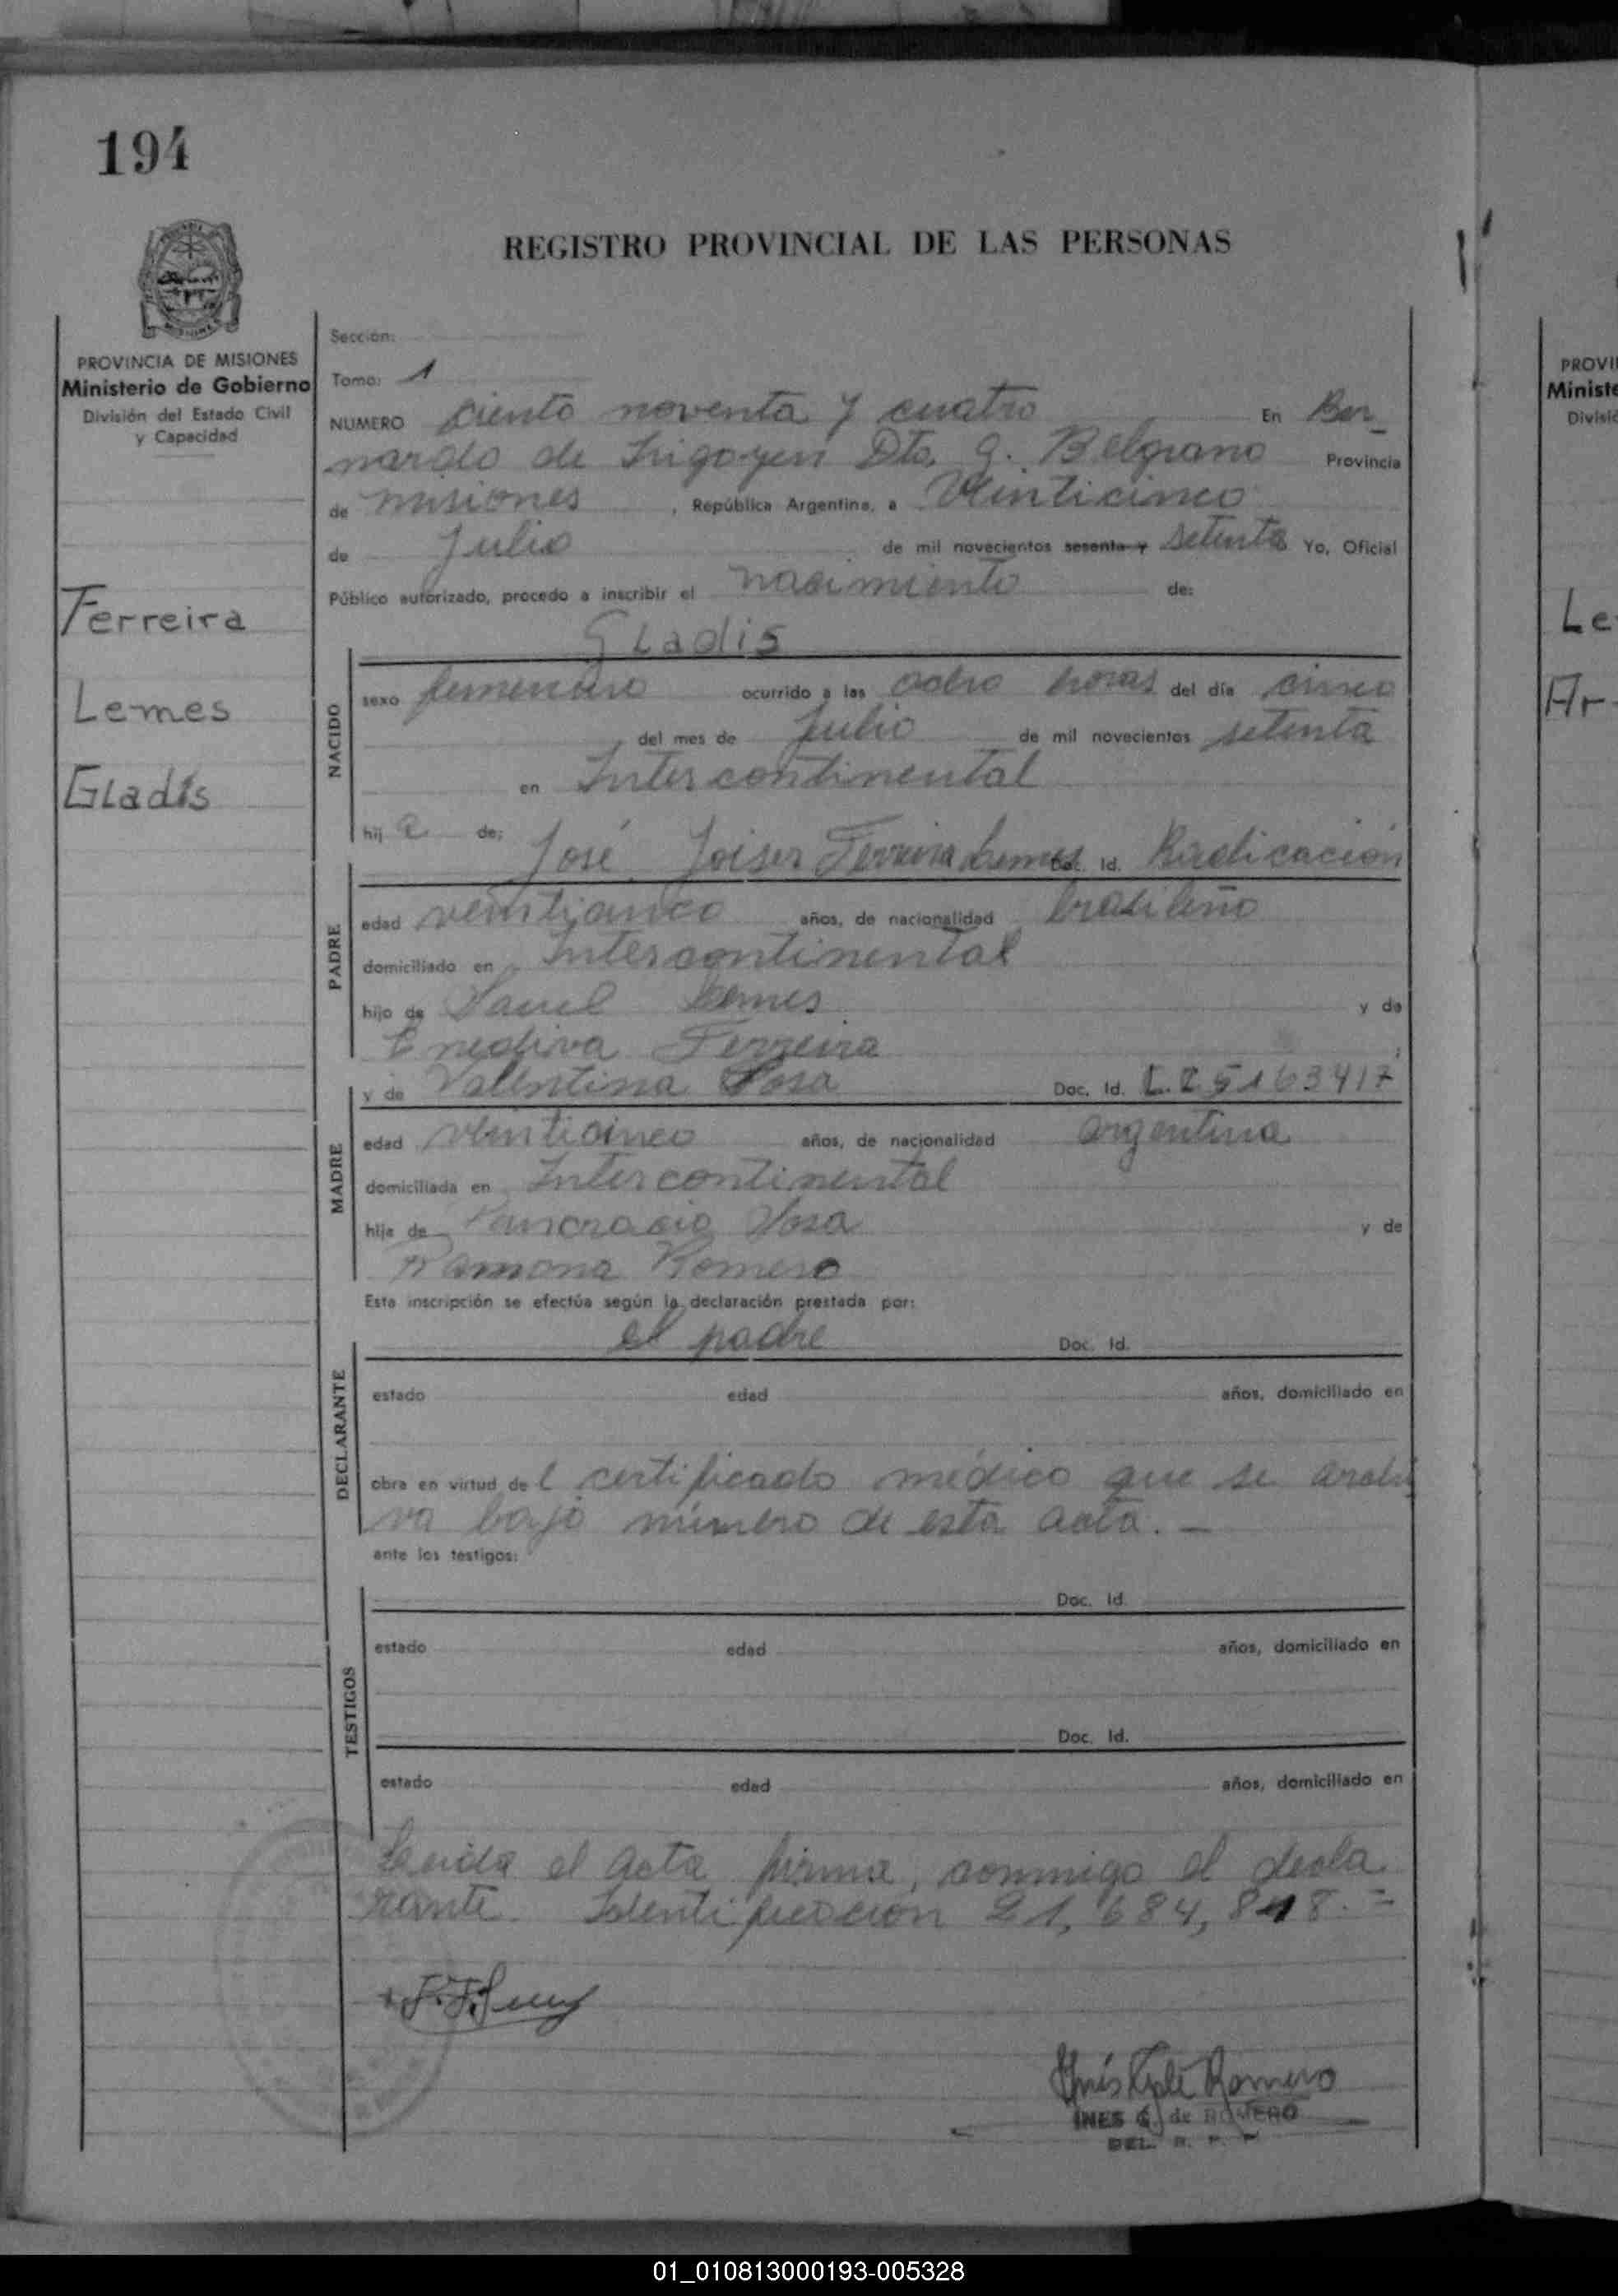 194
REGISTRO PROVINCIAL DE LAS PERSONAS
PROVINCIA DE MISIONES
Ministerio de Gobierno
División del Estado Civil
y Capacidad
Ferreira
Lemes
Gladis
Sección:
Tomo: 1
NUMERO ciento noventa y cuatro En Ber_
nardo de Irigoyen Dto. G. Belgrano Provincia
de misiones, República Argentina, a Veinticinco
de Julio de mil novecientos sesenta y setenta Yo, Oficial
Público autorizado, procedo a inscribir el nacimiento de:
GLadis
NACIDO
sexo femenino ocurrido a las ocho horas del día cinco
del mes de Julio de mil novecientos setenta
en Intercontinental
hij a de: José Joiser Ferreira Lemes Doc. Id. Radicación
PADRE
edad veinticinco años, de nacionalidad brasileño
domiciliado en Intercontinental
hijo de Lemes y de
Enedina Ferreira
y de Valentina Sosa Doc. Id. L.C 5163417
MADRE
edad veinticinco años, de nacionalidad argentina
domiciliada en Intercontinental
hija de Pancracio Sosa y de
Ramona Romero
Esta inscripción se efectúa según la declaración prestada por:
el padre Doc. Id.
DECLARANTE
estado edad años, domiciliado en
obra en virtud de l certificado médico que se archi
va bajo número de esta acta. –
ante los testigos:
Doc. Id.
TESTIGOS
estado edad años, domiciliado en
Doc. Id.
estado edad años, domiciliado en
Leida el acta firma, conmigo el decla
rante. Identificación 21,684,818.=
Inés Romero
INES G. de ROMERO
DEL. R. P. P
PROVI
Ministe
Divisió
Le
Ar
01_010813000193-005328